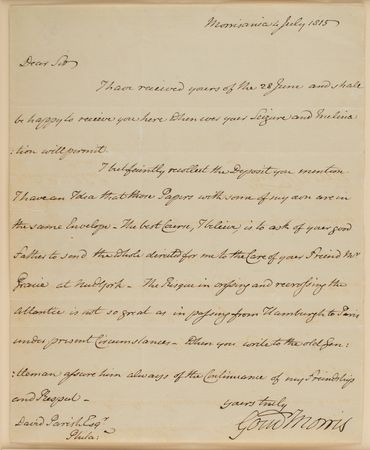 Morrisania 4 July 1815
Dear Sir
I have received yours of the 28 June and shall
be happy to receive you here when ever your Leizure and Inclina
:tion will permit.
I sufficiently recollect the Deposit you mention
I have an Idea that those Papers with some of my own are in
the same Envelope – The best Course, I believe is to ask of your good
Father to send the Whole directed for me to the Care of your Friend Mr
Gracie at New York – The Risque in crossing and recrossing the
Atlantic is not so great as in passing from Hamburgh to Paris
under present Circumstances – When you write to the old Gen:
:tleman assure him always of the Continuance of my Friendship
and Respect –
yours truly
Gouv Morris
David Parish Esqr
Phila: